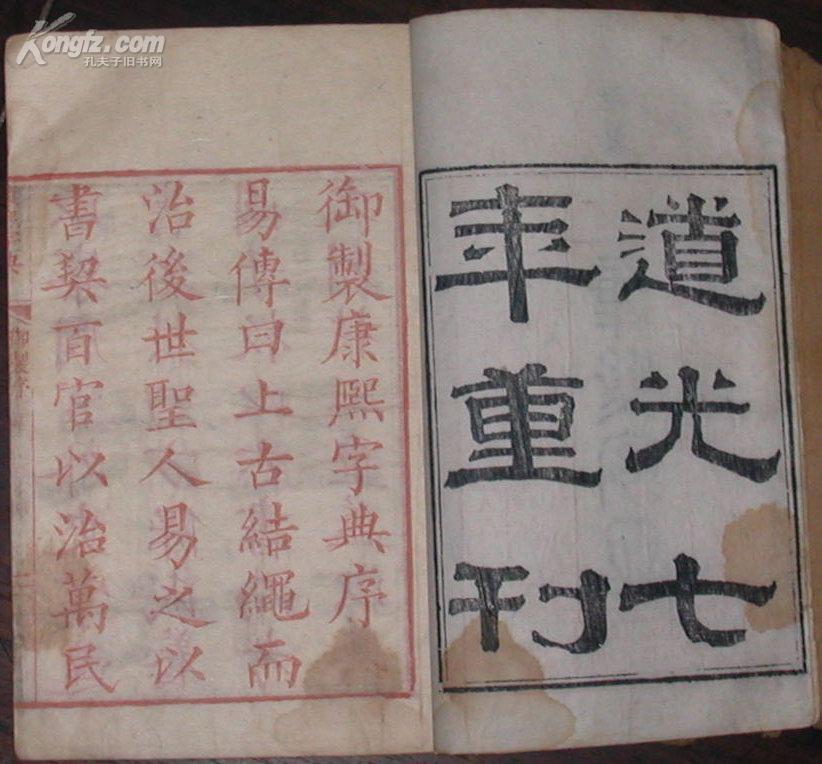 道光七
年重刊
御製康熙字典序
易傳曰上古結繩而
治後世聖人易之以
書契百官以治萬民
御製序
Kongfz.com
孔夫子旧书网